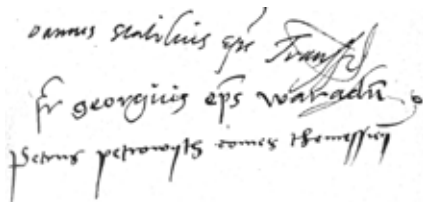 Joannes Statilius eps Transs
fr georgius eps waradin
petrus petrowyth comes themessien